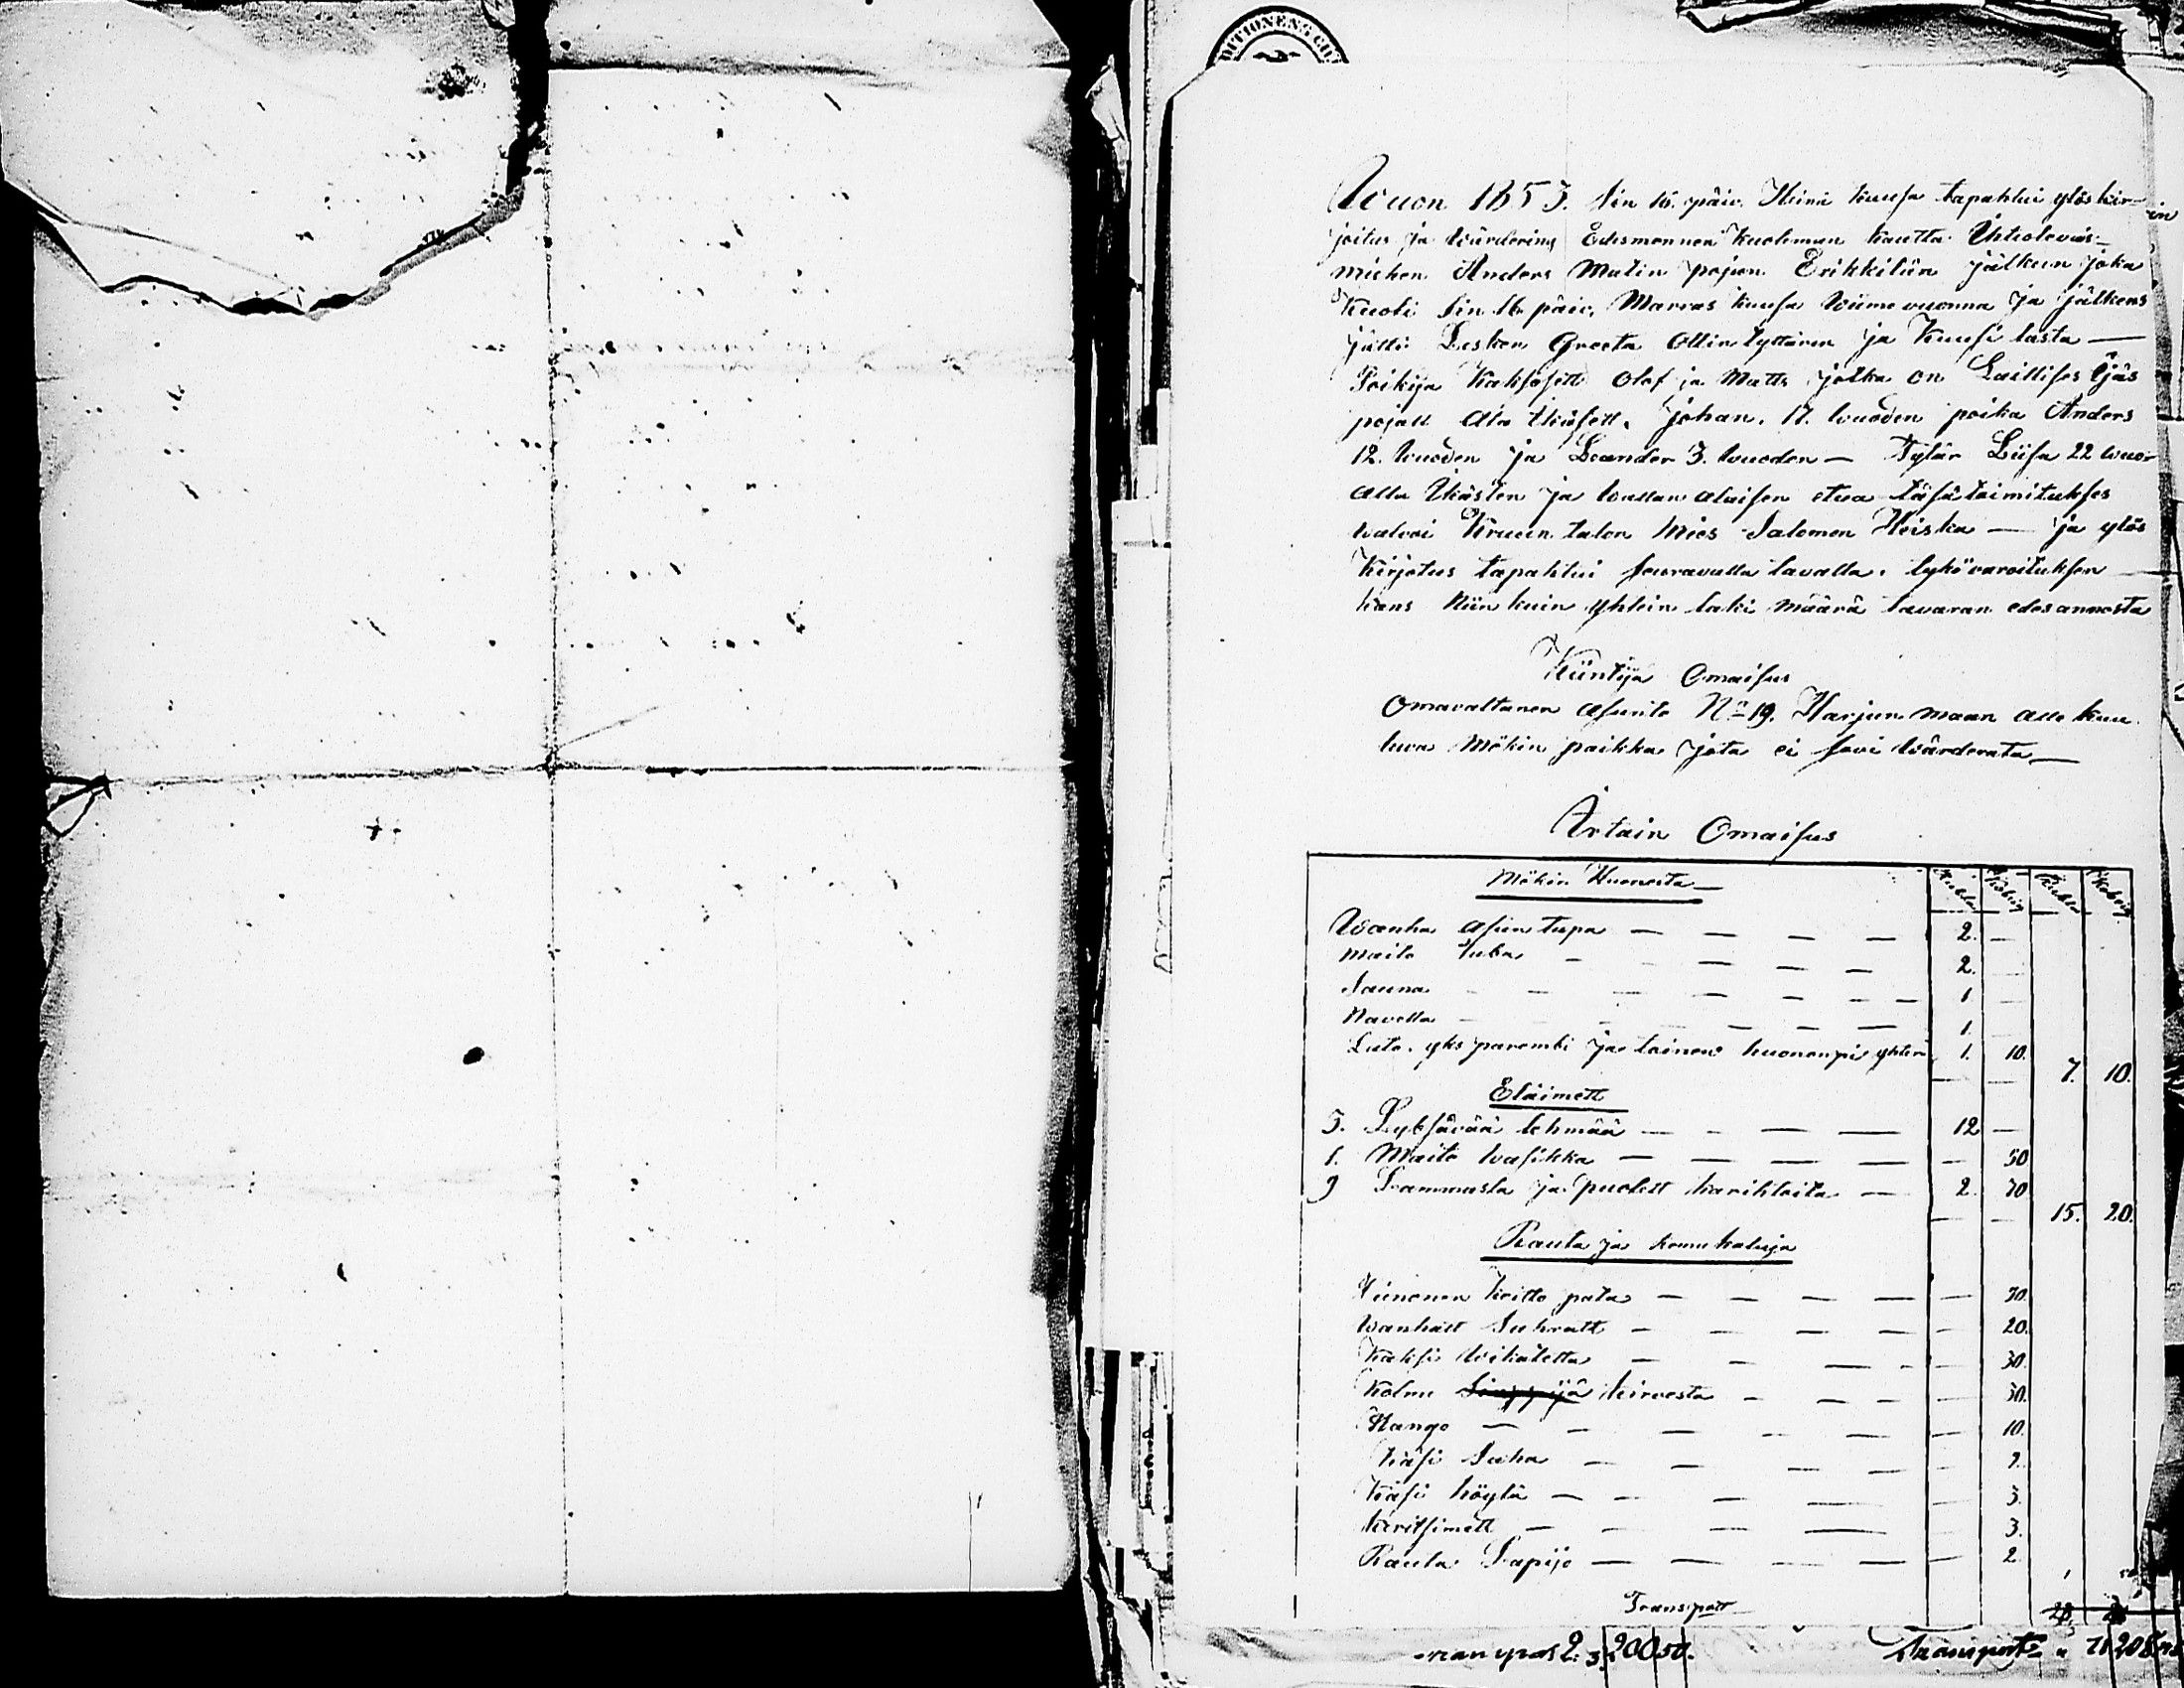 DITIONENS
Wuon 1853. Sin 16. päiv. Heinä kuusa tapahtui ylöskir-
joitus ja Wärdering Edesmennen Kuoleman kautta Ihtiolevais-
miehen Anders Matin pojan Erikkilän jälkeen joka
Kuoli Sin 16 päiv, Marras kuusa Wiime vuonna ja jälkens
jätti Lesken Greeta Ollin tyttären ja Kuusi lasta —
Poikija Kaksosett Olof ja Matts jotka on Laillises Ijäs
pojatt Ala Ikäsett, Johan. 17. wuoden poika Anders
12. wuoden ja Leander 3. wuoden — Tytär Liisa 22 wuo-
Alla Ikästen ja wallan alaisen etua täsä toimitukses
walvoi Kruun talon Mies Salomon Heiska — ja ylös
Kirjotus tapahtui seuravalla tavalla. lykö varoituksen
kans Niin kuin Yhtein laki määrä tavaran edesannosta
Kiintijä Omaisus
Omavaltanen asunto No 19. Harjun maan alle kuu
luva Mökin paikka jota ei sovi Wärderata —
Irtain Omaisus
Mökin Huoneita — Rubla Kopeig Rubla Kopeig
Wanha Asuin tupa — — — — 2. —
Maito tuba — — — — 2. —
Sauna — — — — — — 1 —
Navetta — — — — — 1. —
Lato. yks parembi ja toinen huonompi yhten 1. 10. 7. 10.
Eläimett
3. Lybsävää lehmää — — — — 12 —
1. Maito wasikka — — — — — 50
9 Lammasta ja puolett karihtoita — 2. 70 15. 20.
Rauta ja komu kaluja
Viinanen keitto pata — — — — — 70.
Wanhatt — — — — 20.
Kaksi Wikatetta — — — — 30.
Kolme kirvesta — — — — 30.
Kango — — — — — — 10.
Käsi Saha — — — — —
Käsi höylä — — — — — 3.
keritsimett — — — — 3.
Rauta Lapijo — — — — — 2.
Transport
Transport